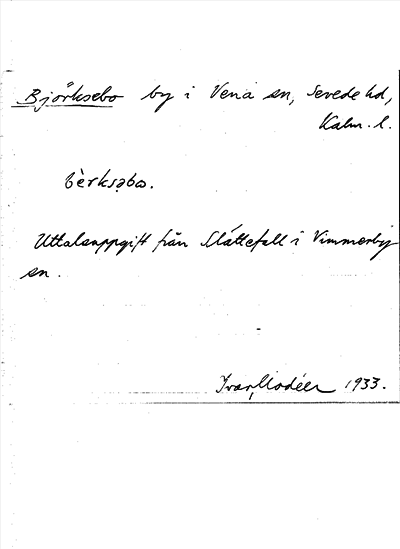 Björksebo by i Vena sn, Sevede hd,
Kalm. l.
bèrksəbo.
Uttalsuppgift från Slättefall i Vimmerby
sn.
Ivar Modéer 1933.